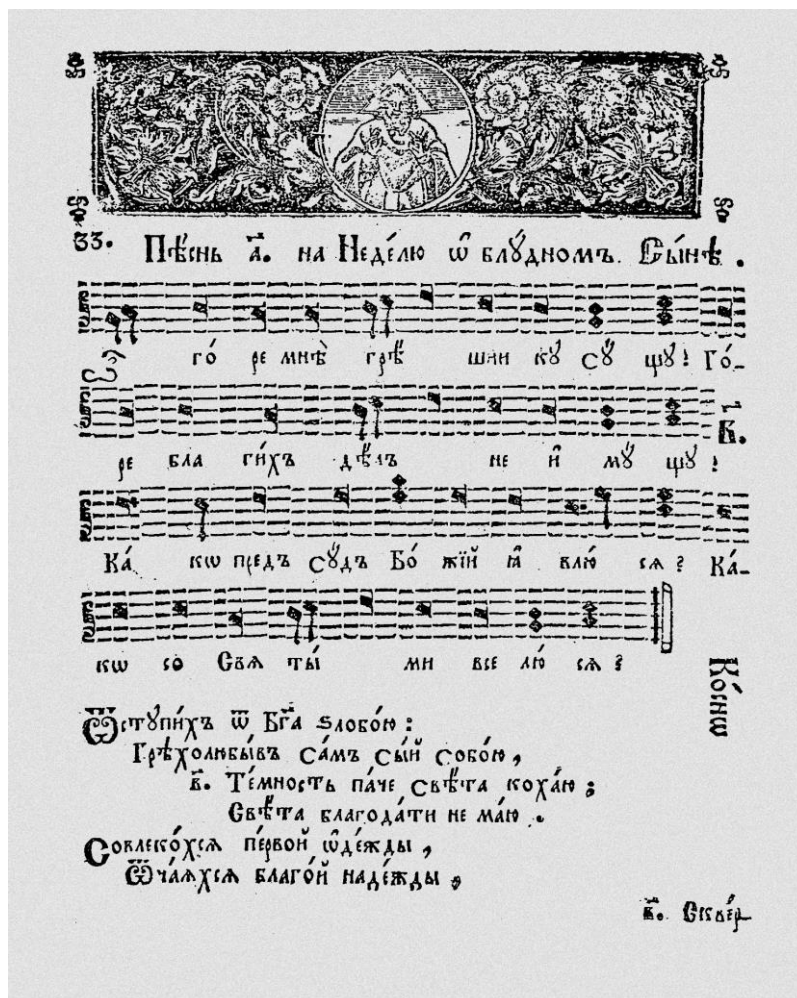 33. Пѣ́снь а҃. на Недѣ́лю ѡ҆ блꙋ́дномъ Сы́нѣ.
го́ ре мнѣ̀ грѣ́ шни кꙋ̀ сꙋ́ щꙋ! Го́-
ре бла ги́хъ дѣ́лъ не и҆ мꙋ́ щꙋ! в҃.
Ка́ кѡ предъ сꙋ́дъ Бо́ жїй ꙗ҆ влю́ сѧ? Ка́-
кѡ со Свѧ ты́ ми все лю́ сѧ?
Ко́снѡ
Ѿстꙋпи́хъ ѿ Бг҃а ѕлобо́ю:
Грѣхолюбы́въ са́мъ сы́й собо́ю,
в҃. Те́мность па́че свѣ́та коха́ю;
Свѣ́та благода́ти не ма́ю.
Совлеко́хсѧ пе́рвой ѡ҆де́жды,
Ѿча́ѧхсѧ благо́й наде́жды,
в҃. Сквер